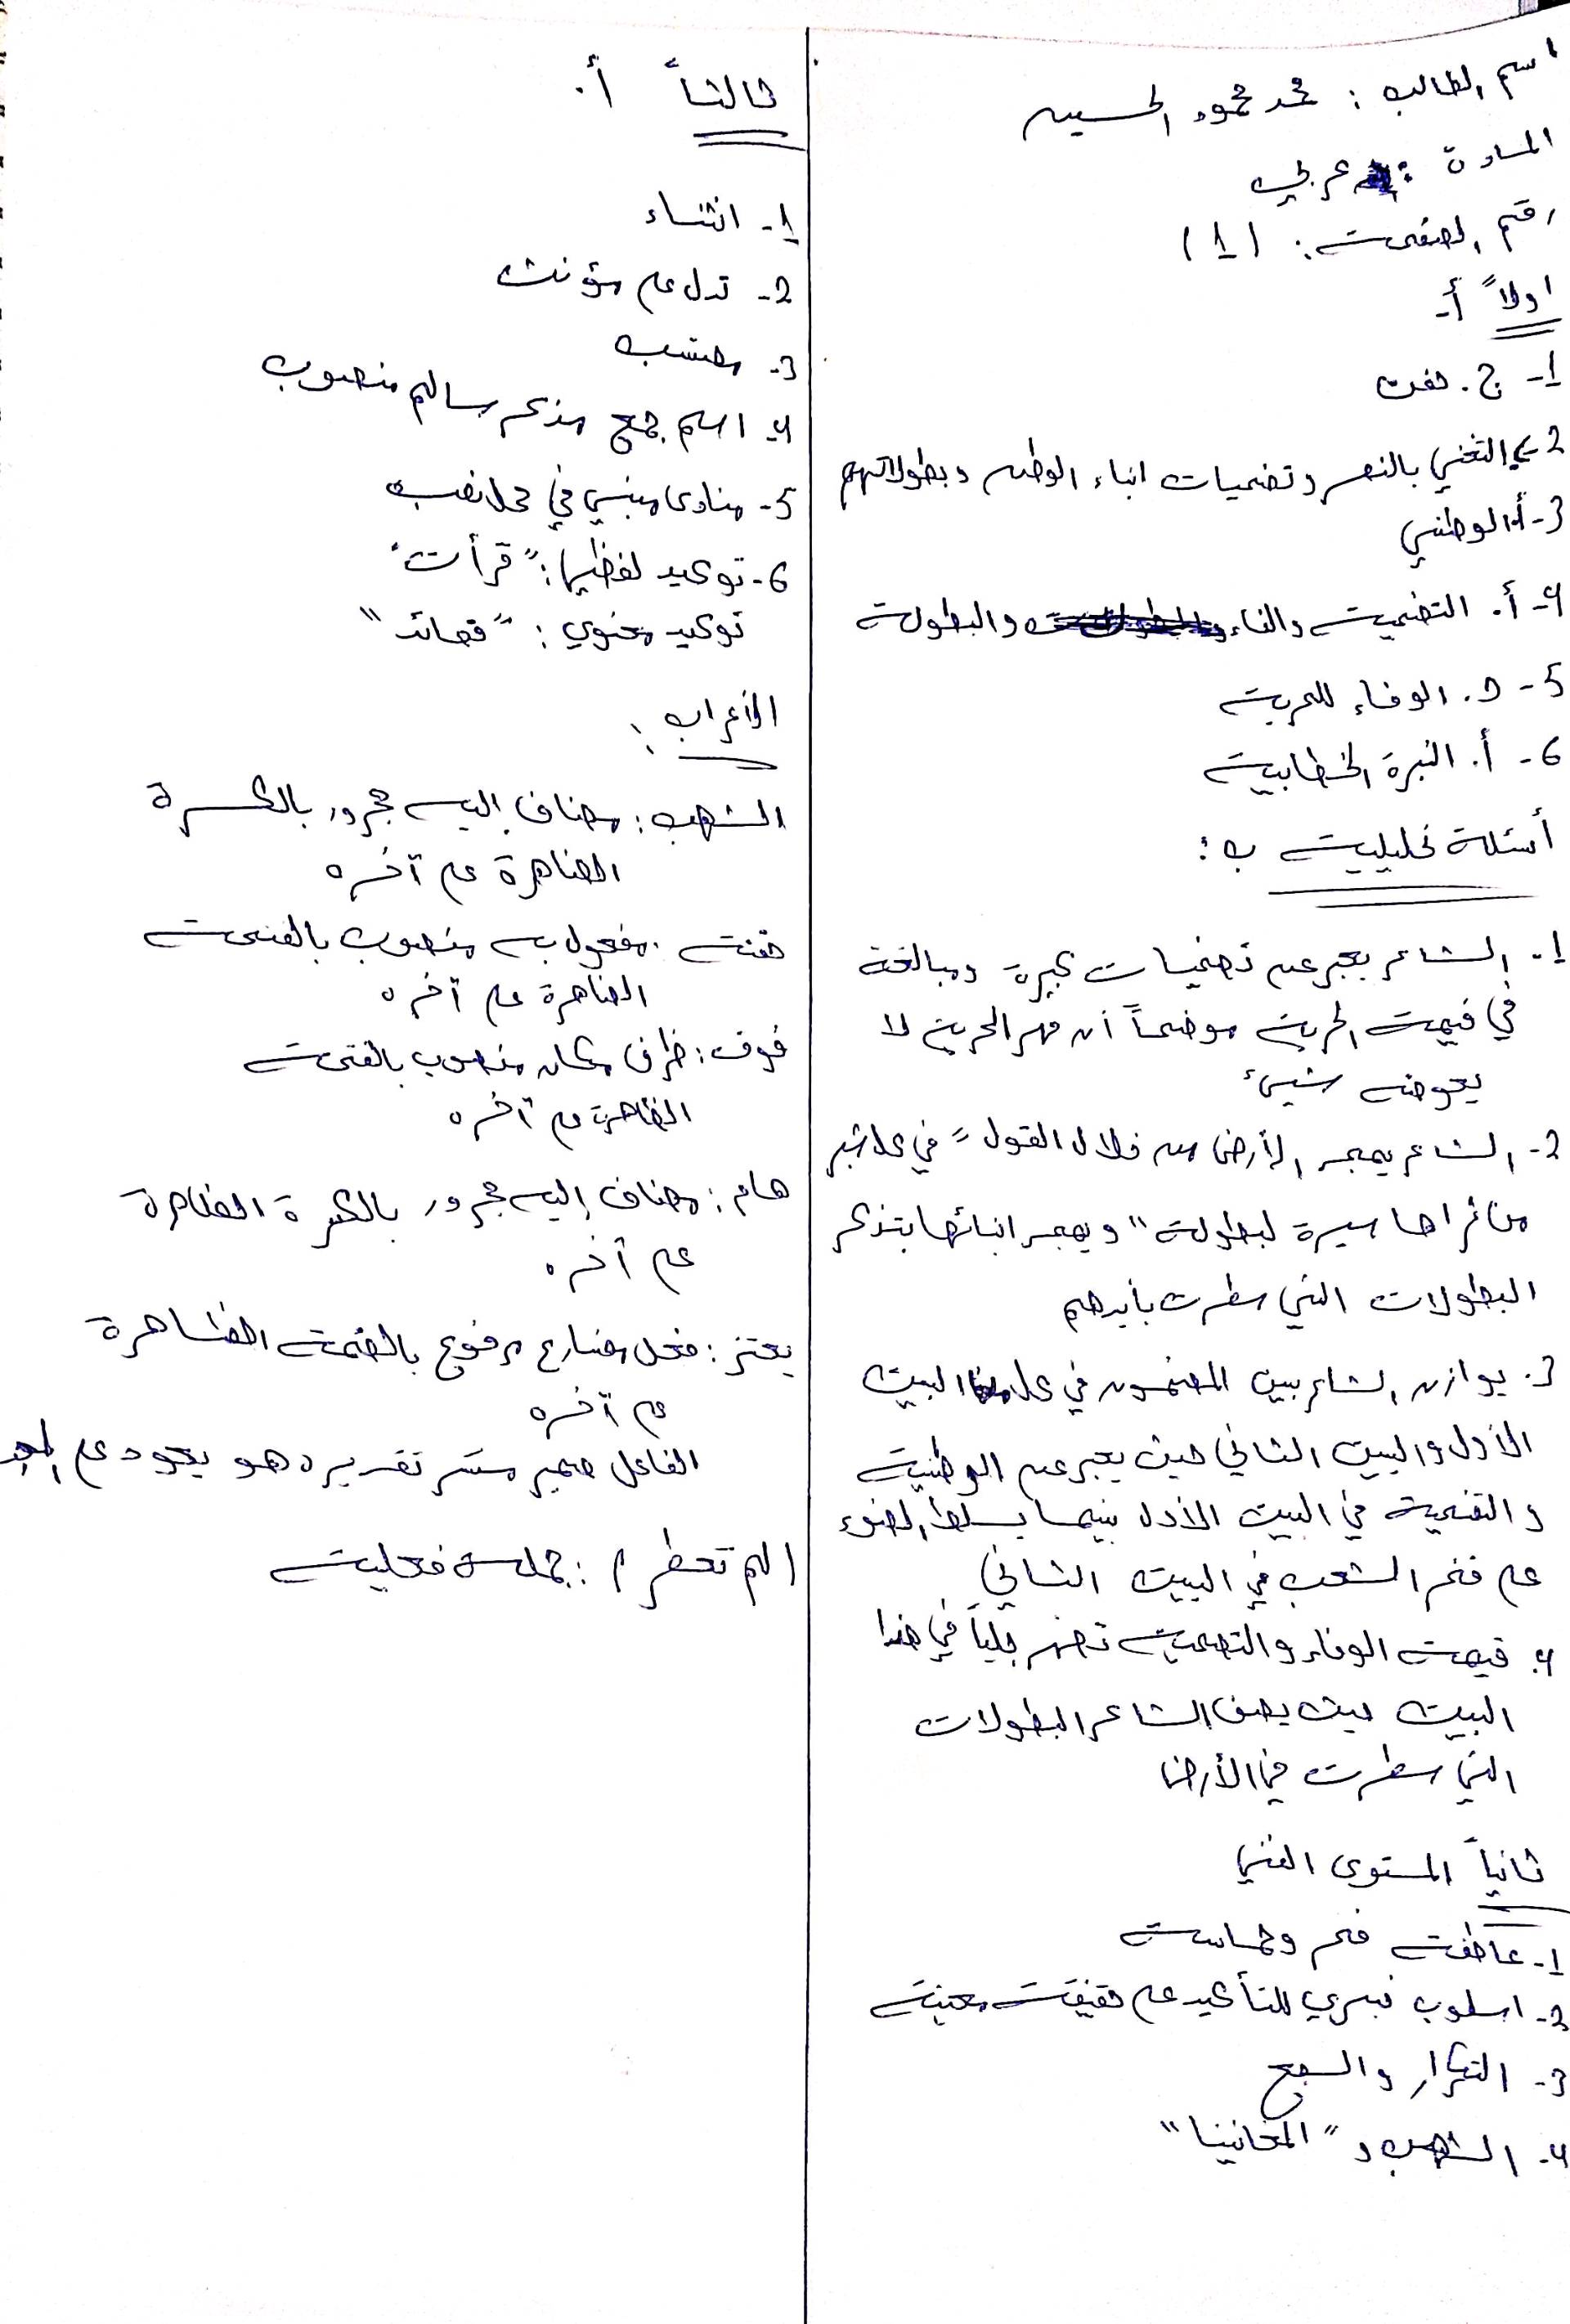 اسم الطالب : محمد محمود الحسين
المادة : عربي
رقم الصفحة : (1)
اولاً أ-
1- ج. حفن
2- التغني بالنصر وتضحيات ابناء الوطن وبطولاتهم
3- أ. الوطني
4- أ. التضحية والفداء والبطولة
5- د. الوفاء للحرية
6- أ. النبرة الخطابية
أسئلة تحليلية ب :
1- الشاعر يعبر عن تضحيات كبيرة ومبالغة
في قيمة الحرية موضحاً أن مهر الحرية لا
يعوضه شيء
2- الشاعر يمجد الأرض من خلال القول "في كل شبر
من ثراها سيرة لبطولة" ويمجد ابنائها بتذكر
البطولات التي سطرت بأيدهم
3- يوازن الشاعر بين المضمون في كل البيت
الأول والبيت الثاني حيث يعبر عن الوطنية
والتضحية في البيت الأول بينما يسلط الضوء
على فخر الشعب في البيت الثاني
4- قيمة الوفاء والتضحية تظهر جلياً في هذا
البيت حيث يصف الشاعر البطولات
التي سطرت في الأرض
ثانياً المستوى الفني
1- عاطفة فخر وحماسة
2- اسلوب خبري للتأكيد على حقيقة معينة
3- التكرار والسجع
4- الشهب و "المغانينا"
ثالثاً أ.
1- انشاء
2- تدل على مؤنث
3-
4- اسم جمع مذكر سالم منصوب
5- منادى مبني في محل نصب
6- توكيد لفظي : "قرأت"
توكيد معنوي : "قصائد"
الأعراب :
الشهب : مضاف إليه مجرور بالكسرة
الضاهرة على آخره
حفنة : مفعول به منصوب بالفتحة
الضاهرة على آخره
فوق : ظرف مكان منصوب بالفتحة
الظاهرة على آخره
هام : مضاف إليه مجرور بالكسرة الظاهرة
على آخره
يعتز : فعل مضارع مرفوع بالضمة الظاهرة
على آخره
الفاعل ضمير مستتر تقديره هو يعود على المجد
(لم تحظر) : جملة فعلية